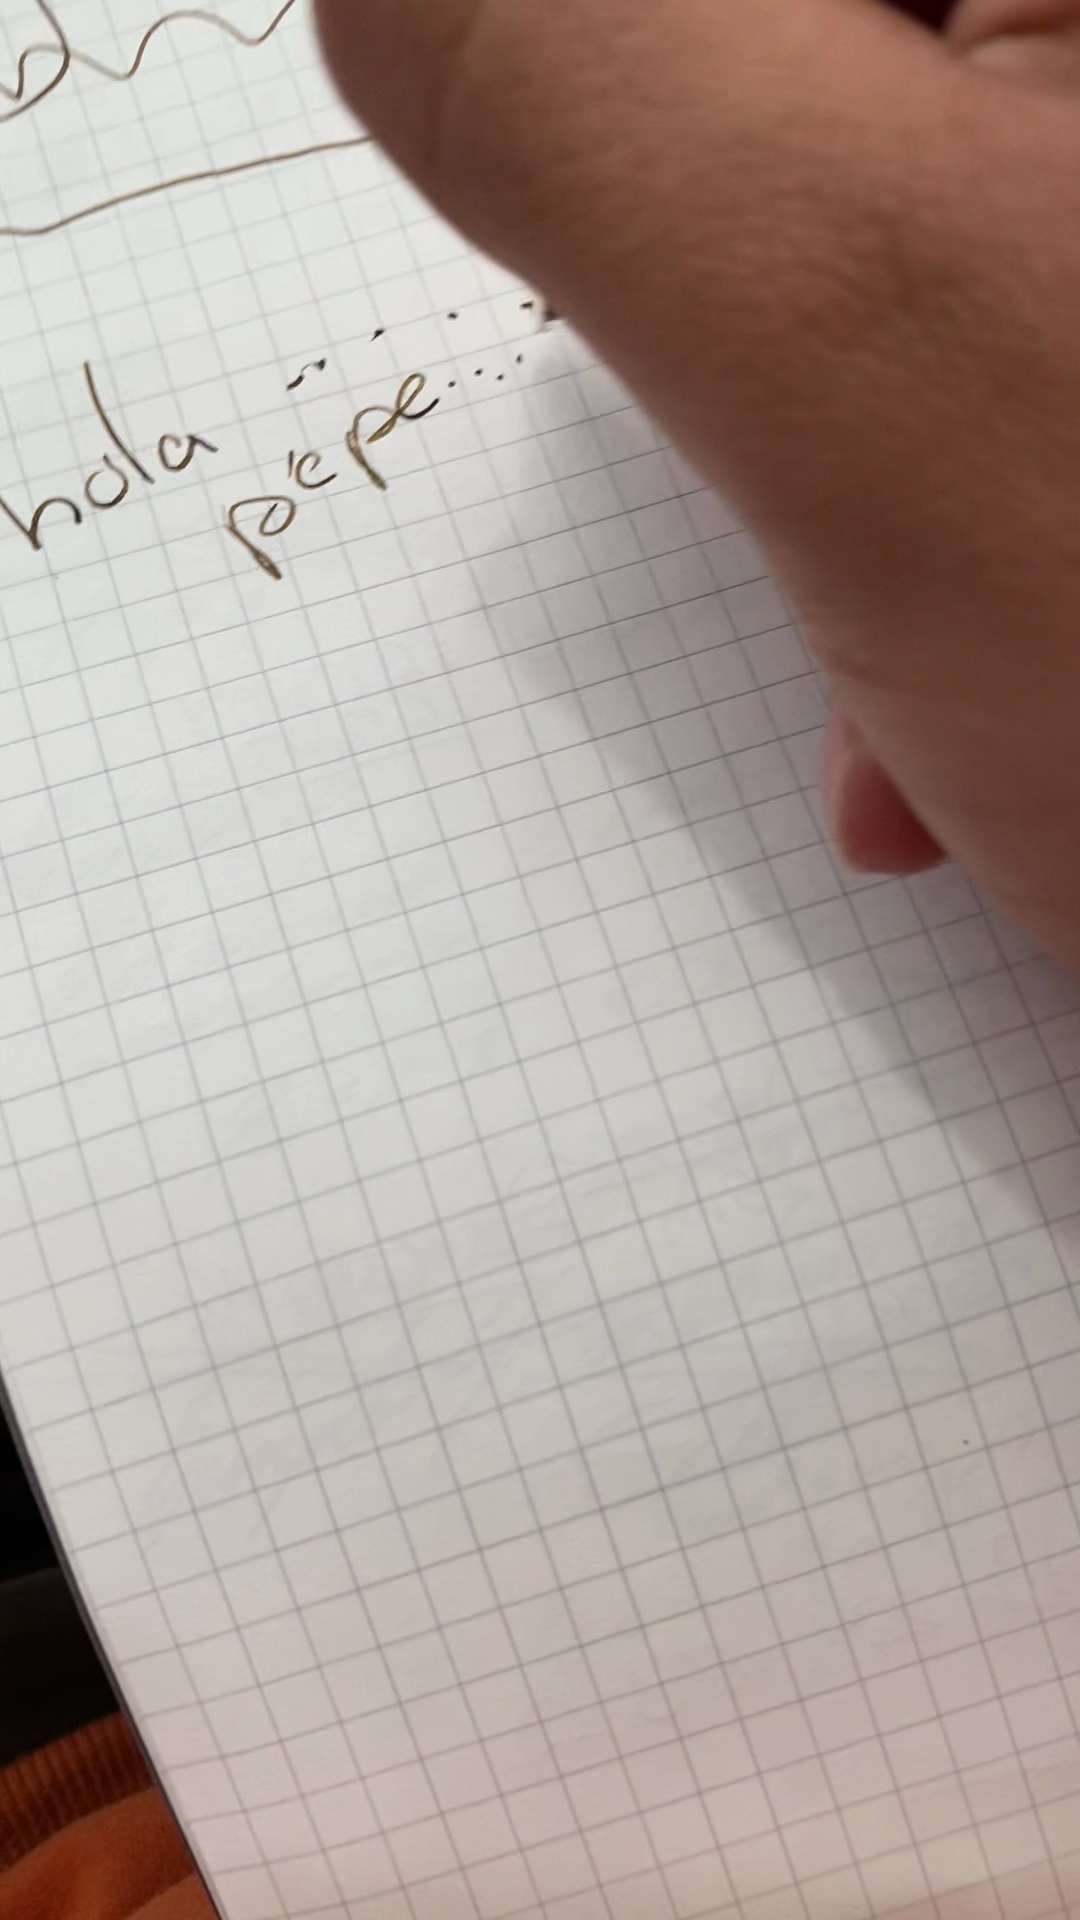 hola
pepe....